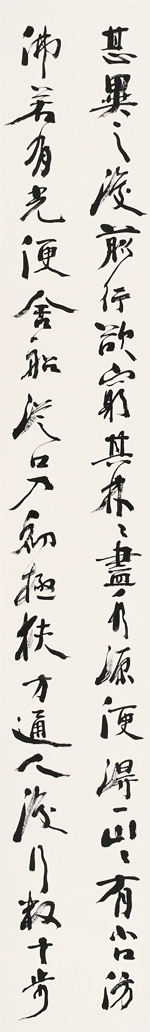 甚異之復前行欲窮其林〻盡水源便得一山〻有小口彷
彿若有光便舍船從口入初極狹才通人復行數十步